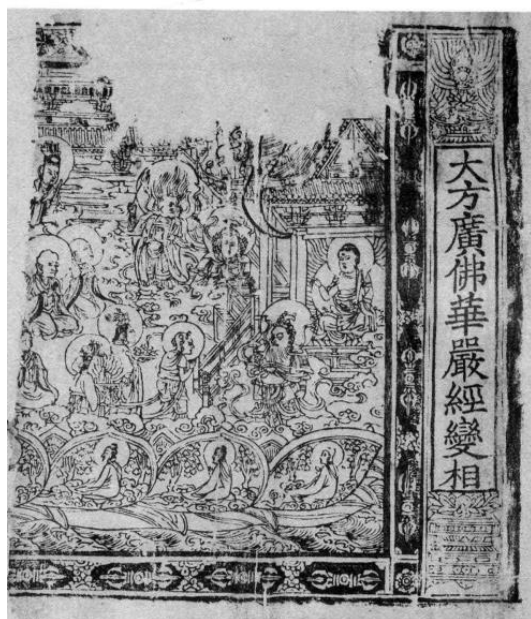 大方廣佛華嚴經變相